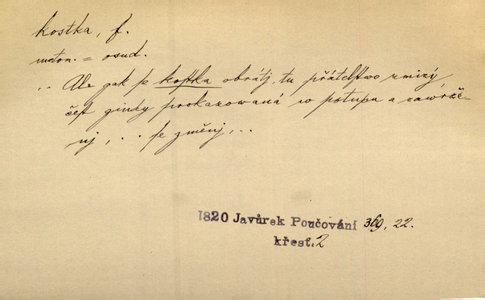 kostka, f.
meton. = osud.
.. Ale gak se kostka obrátj, tu přátelstwo zmizý
čest gindy prokazowaná w potupu a zawržе-
nj, ... se změnj, ..
1820 Javůrek Poučování 369, 22.
křest. 2